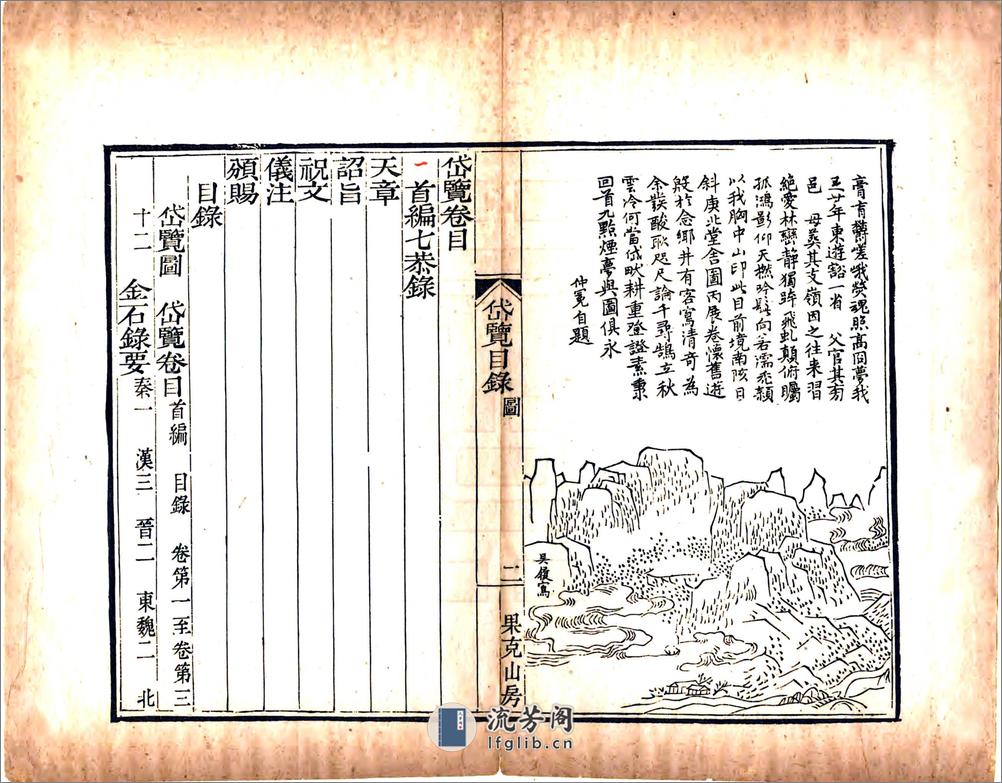 膏肓鬱嗟哦勞魂照高岡夢我
五廿年東遊豁一眚 父官其旁
邑 母葬其支嶺因之往來習
絶愛林巒靜獨眺飛虬顛俯矚
孤鴻影仰天撚吟髭向若濡禿穎
以我胸中山印此目前境南陔日
斜庚北堂含圖丙展卷懷舊遊
殷於念鄉井有客寫清奇為
余裝酸耿咫尺論千尋鵠立秋
雲冷何當岱畎耕重登證素秉
回首九點煙夢與圖俱永
仲冕自題
吳履寫
岱覽目錄 圖
二
果克山房
岱覽卷目
一首編七恭錄
天章
詔旨
祝文
儀注
頒賜
目錄
岱覽圖 岱覽卷目首編 目錄 卷第一至卷第三
十二 金石錄要秦一 漢三 晉二 東魏二 北
流芳阁
lfglib.cn